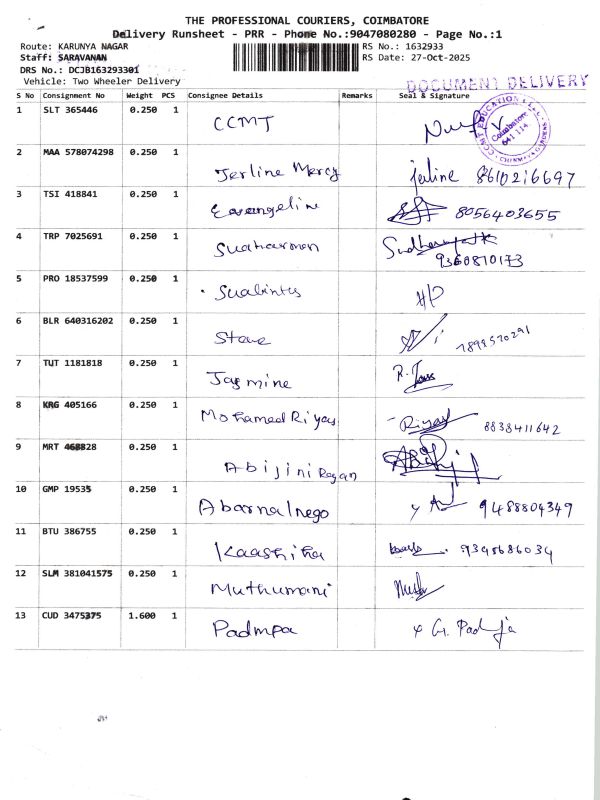 THE PROFESSIONAL COURIERS, COIMBATORE
Delivery Runsheet - PRR - Phone No.:9047080280 - Page No.:1
Route: KARUNYA NAGAR RS No.: 1632933
Staff: SARAVANAN RS Date: 27-Oct-2025
DRS No.: DCJB163293301
Vehicle: Two Wheeler Delivery
DOCUMENT DELIVERY
S No Consignment No Weight PCS Consignee Details Remarks Seal & Signature
1 SLT 365446 0.250 1 CCMT
CCMT EDUCATION
Coimbatore
641 114
2 MAA 578074298 0.250 1 Jerline Mercy jerline 8610216697
3 TSI 418841 0.250 1 Evangeline 8056403655
4 TRP 7025691 0.250 1 Sudharman
9360810173
5 PRO 18537599 0.250 1
6 BLR 640316202 0.250 1 Steve
7 TUT 1181818 0.250 1 Jasmine R.
8 KRG 405166 0.250 1 Mohamed Riyas Riyas 8838411642
9 MRT 0.250 1 Abijini Rajan
10 GMP 19535 0.250 1 9488804349
11 BTU 386755 0.250 1 Kaashika 9345686034
12 SLM 381041575 0.250 1 Muthumani
13 CUD 3475375 1.600 1 Padmpa G.